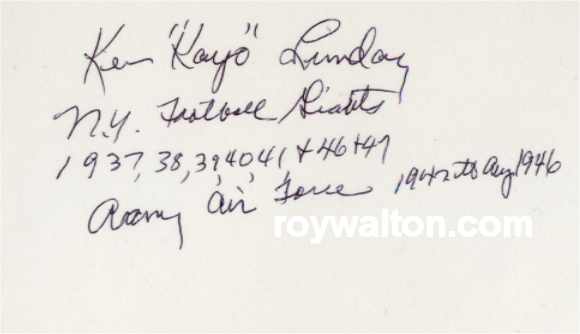 Ken "Kayo" Lunday
N.Y. Football Giants
1937, 38, 39, 40, 41 + 46 + 47
Army Air Force 1942 to Aug 1946
roywalton.com